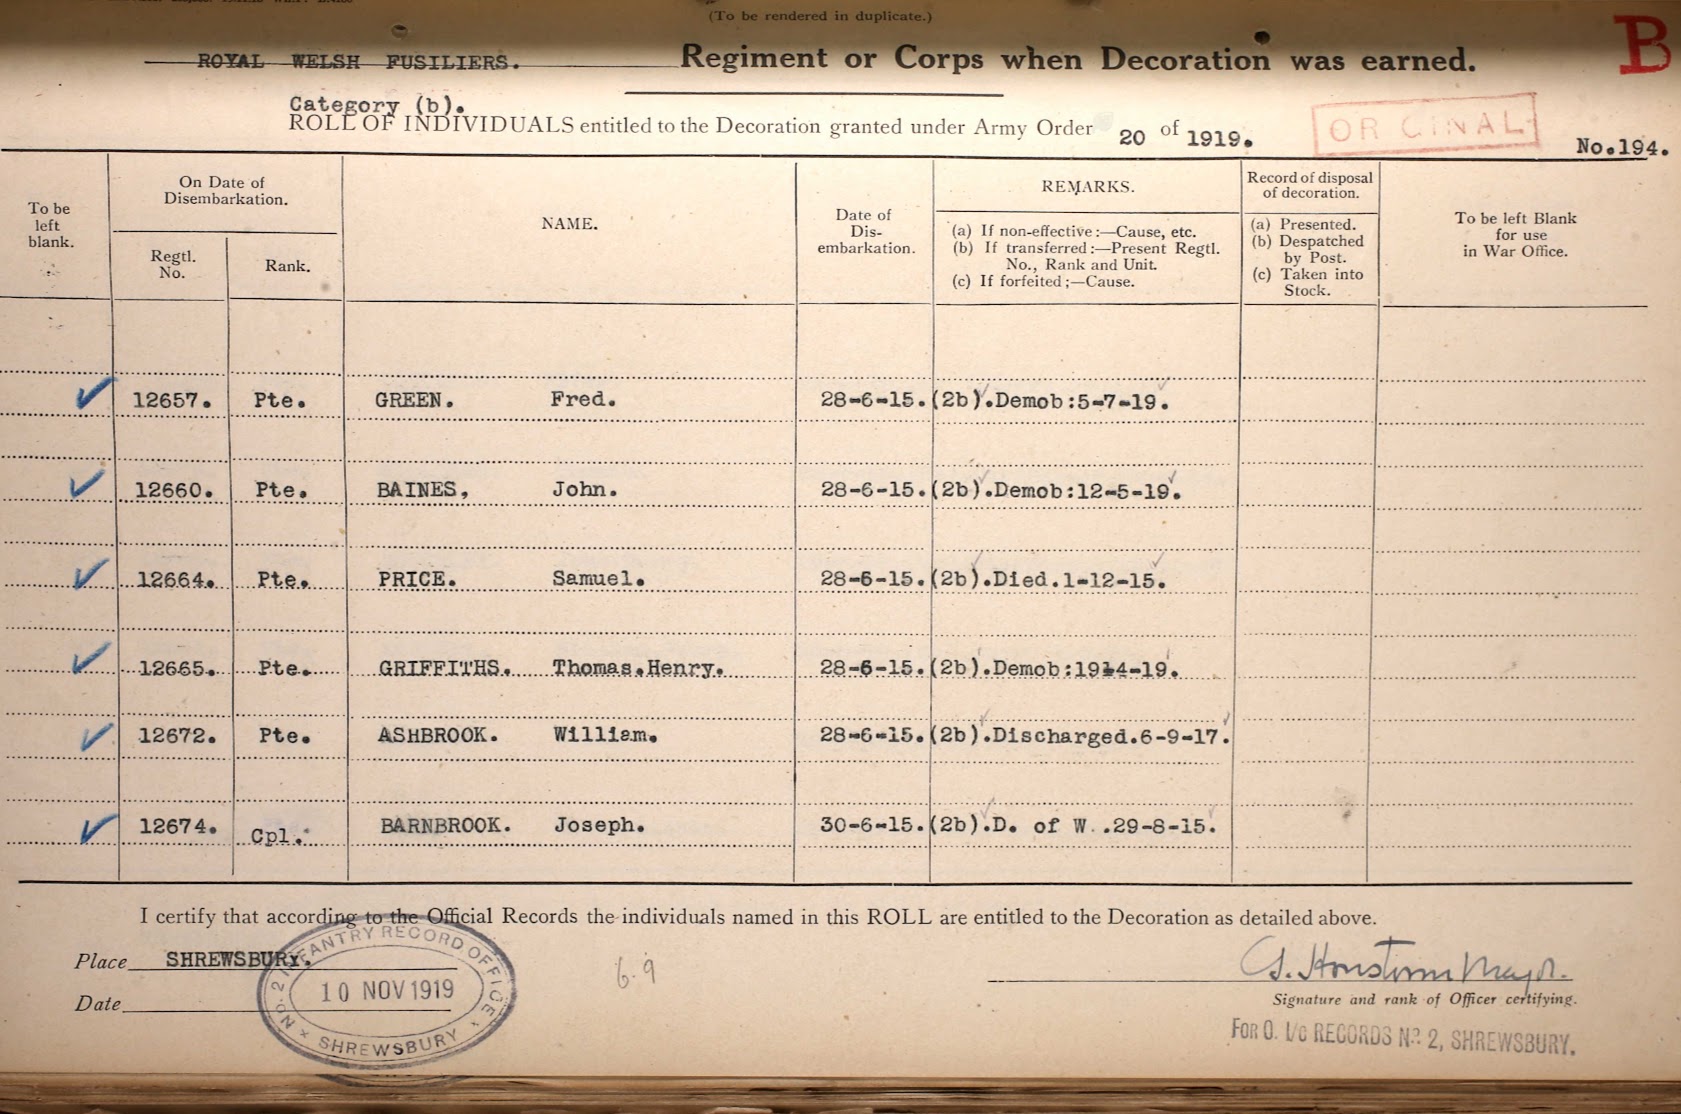 (To be rendered in duplicate.)
B
ROYAL WELSH FUSILIERS. Regiment or Corps when Decoration was earned.
Category (b).
ROLL OF INDIVIDUALS entitled to the Decoration granted under Army Order 20 of 1919.
ORIGINAL
No.194.
To be
left
blank.
On Date of
Disembarkation.
Regtl.
No.
Rank.
NAME.
Date of
Dis-
embarkation.
REMARKS.
(a) If non-effective:—Cause, etc.
(b) If transferred:—Present Regtl.
No., Rank and Unit.
(c) If forfeited;—Cause.
Record of disposal
of decoration.
(a) Presented.
(b) Despatched
by Post.
(c) Taken into
Stock.
To be left Blank
for use
in War Office.
12657. Pte. GREEN. Fred. 28-6-15. (2b).Demob:5-7-19.
12660. Pte. BAINES, John. 28-6-15. (2b).Demob:12-5-19.
12664. Pte. PRICE. Samuel. 28-6-15. (2b).Died.1-12-15.
12665. Pte. GRIFFITHS. Thomas.Henry. 28-6-15. (2b).Demob:1914-19.
12672. Pte. ASHBROOK. William. 28-6-15. (2b).Discharged.6-9-17.
12674. Cpl. BARNBROOK. Joseph. 30-6-15. (2b).D. of W..29-8-15.
I certify that according to the Official Records the individuals named in this ROLL are entitled to the Decoration as detailed above.
Place SHREWSBURY.
Date
No. 2 INFANTRY RECORD OFFICE
10 NOV 1919
SHREWSBURY
6.9
Major.
Signature and rank of Officer certifying.
FOR O. I/C RECORDS No. 2, SHREWSBURY.